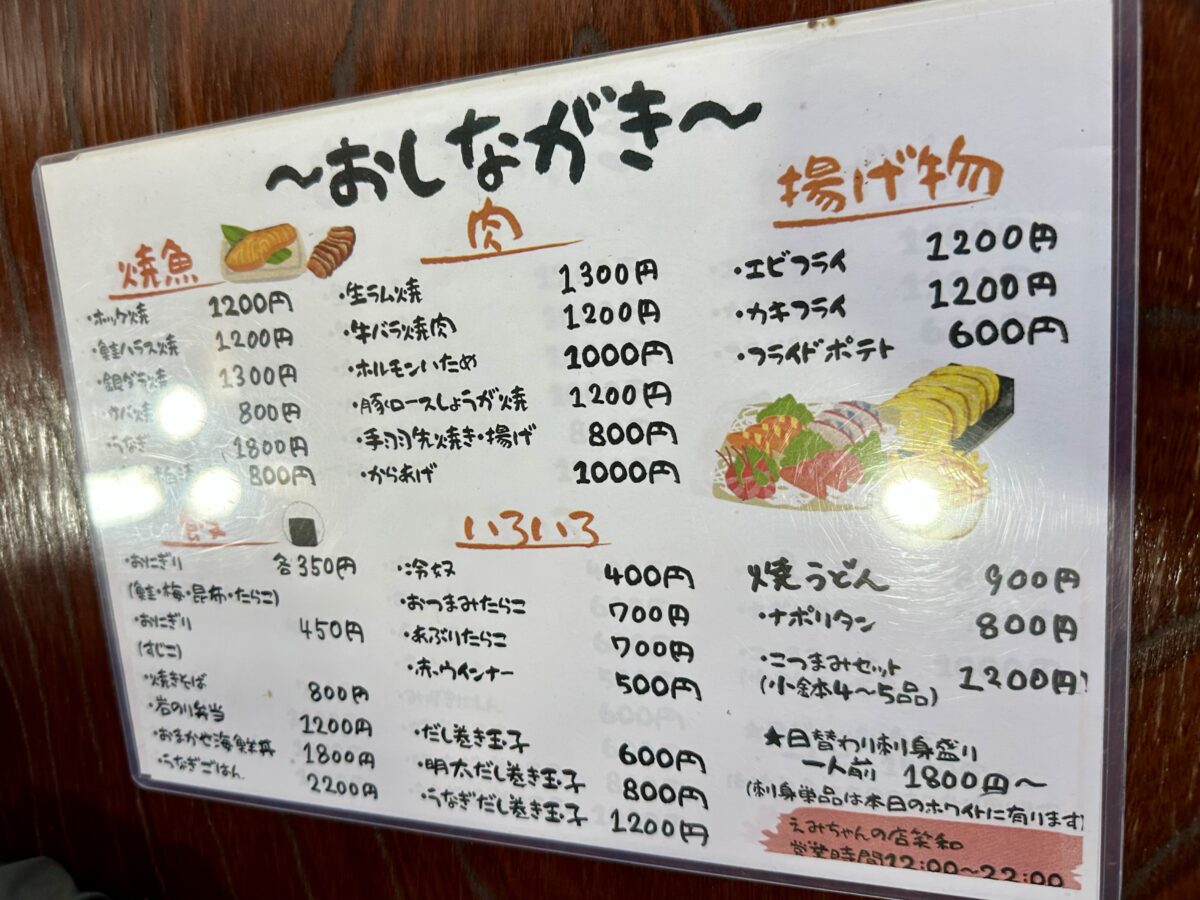 ～おしながき～
焼魚
・ホッケ焼 1200円
・鮭ハラス焼 1200円
・銀ダラ焼 1300円
・サバ焼 800円
・うなぎ 1800円
800円
肉
・生ラム焼 1300円
・牛バラ焼肉 1200円
・ホルモンいため 1000円
・豚ロースしょうが焼 1200円
・手羽先焼き・揚げ 800円
・からあげ 1000円
揚げ物
・エビフライ 1200円
・カキフライ 1200円
・フライドポテト 600円
食事
・おにぎり 各350円
(鮭・梅・昆布・たらこ)
・おにぎり 450円
(すじこ)
・焼きそば 800円
・岩のり弁当 1200円
・おまかせ海鮮丼 1800円
・うなぎごはん 2200円
いろいろ
・冷奴 400円
・おつまみたらこ 700円
・あぶりたらこ 700円
・赤ウインナー 500円
・だし巻き玉子 600円
・明太だし巻き玉子 800円
・うなぎだし巻き玉子 1200円
焼うどん 900円
・ナポリタン 800円
・こつまみセット 1200円
(小鉢4～5品)
★日替わり刺身盛り
一人前 1800円～
(刺身単品は本日のホワイトに有ります)
えみちゃんの店笑和
営業時間12:00～22:00